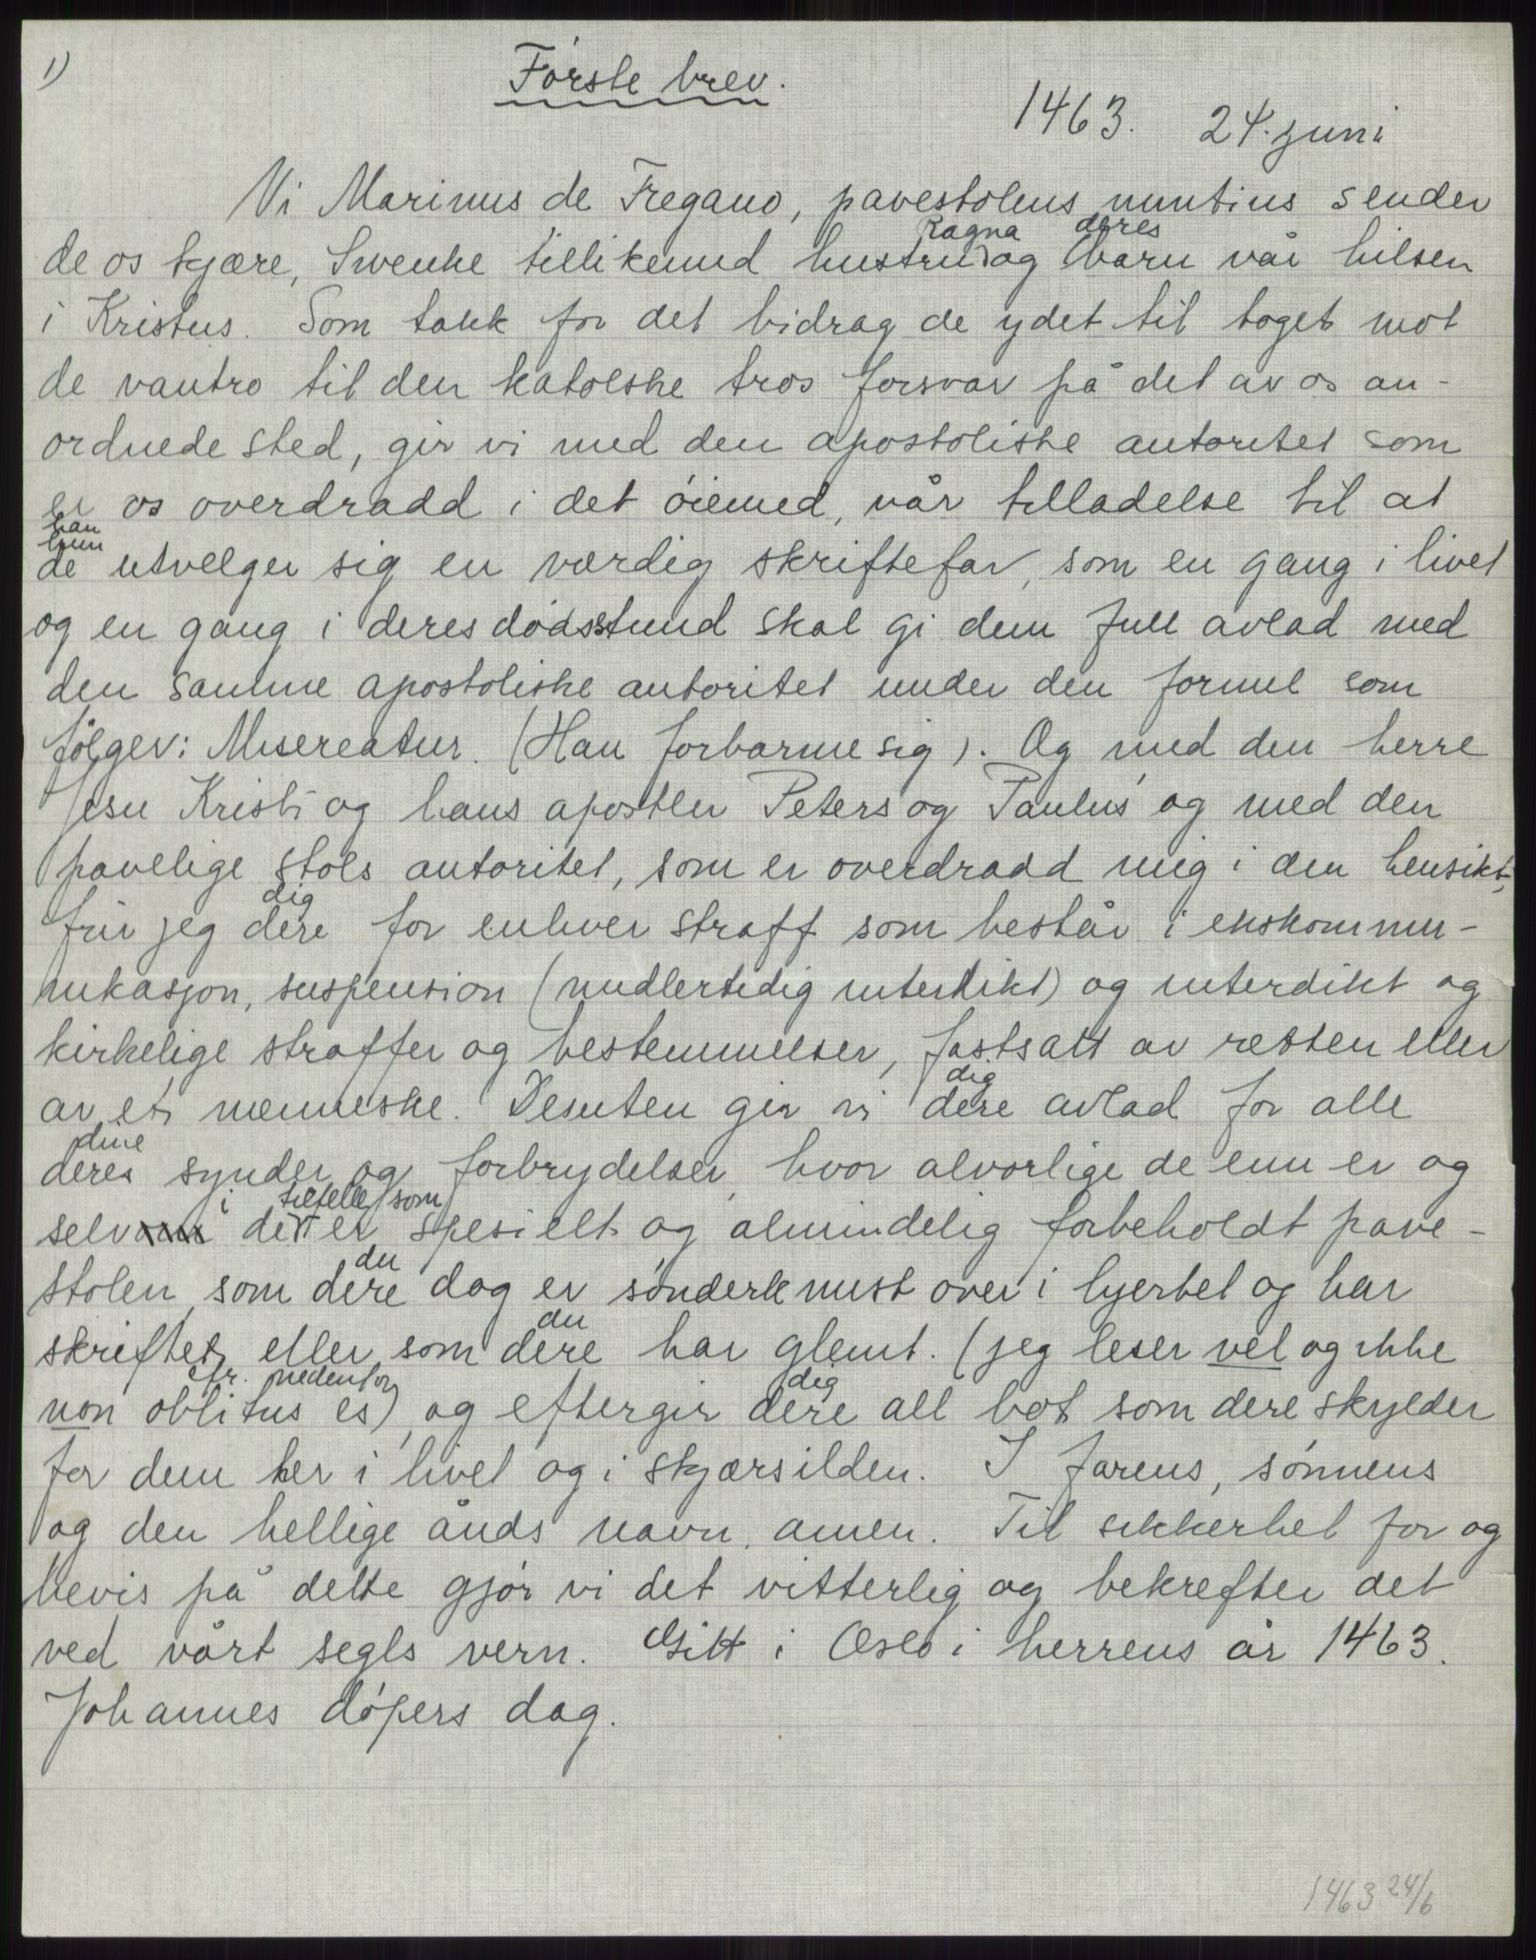 1)
Første brev.
1463. 24. juni
Vi Marinus de Fregano, pavestolens nuntius sender
Ragna deres
de os kjære, Swenke tillikemed hustru og barn vår hilsen
i Kristus. Som takk for det bidrag de ydet til toget mot
de vantro til den katolske tros forsvar på det av os an-
ordnede sted, gir vi med den apostoliske autoritet som
er os overdradd i det øiemed, vår tilladelse til at
han
hun
de utvelger sig en værdig skriftefar, som en gang i livet
og en gang i deres dødsstund skal gi dem full avlad med
den samme apostoliske autoritet under den formel som
følger: Misereatur. (Han forbarme sig). Og med den herre
Jesu Kristi og hans apostler Peters og Paulus' og med den
pavelige stols autoritet, som er overdradd mig i den hensikt,
dig
frir jeg dere for enhver straff som består i ekskommu-
nikasjon, suspension (midlertidig interdikt) og interdikt og
kirkelige straffer og bestemmelser, fastsatt av retten eller
dig
av et menneske. Desuten gir vi dere avlad for alle
dine
deres synder og forbrydelser, hvor alvorlige de enn er og
i tilfelle som
selv det er spesielt og almindelig forbeholdt pave-
du
stolen, som dere dog er sønderknust over i hjertet og har
du
skriftet eller som dere har glemt. (jeg leser vel og ikke
cfr. nedenfor dig
non oblitus es), og eftergir dere all bot som dere skylder
for dem her i livet og i skjærsilden. I farens, sønnens
og den hellige ånds navn, amen. Til sikkerhet for og
bevis på dette gjør vi det vitterlig og bekrefter det
ved vårt segls vern. Gitt i Oslo i herrens år 1463.
Johannes døpers dag.
1463 24/6